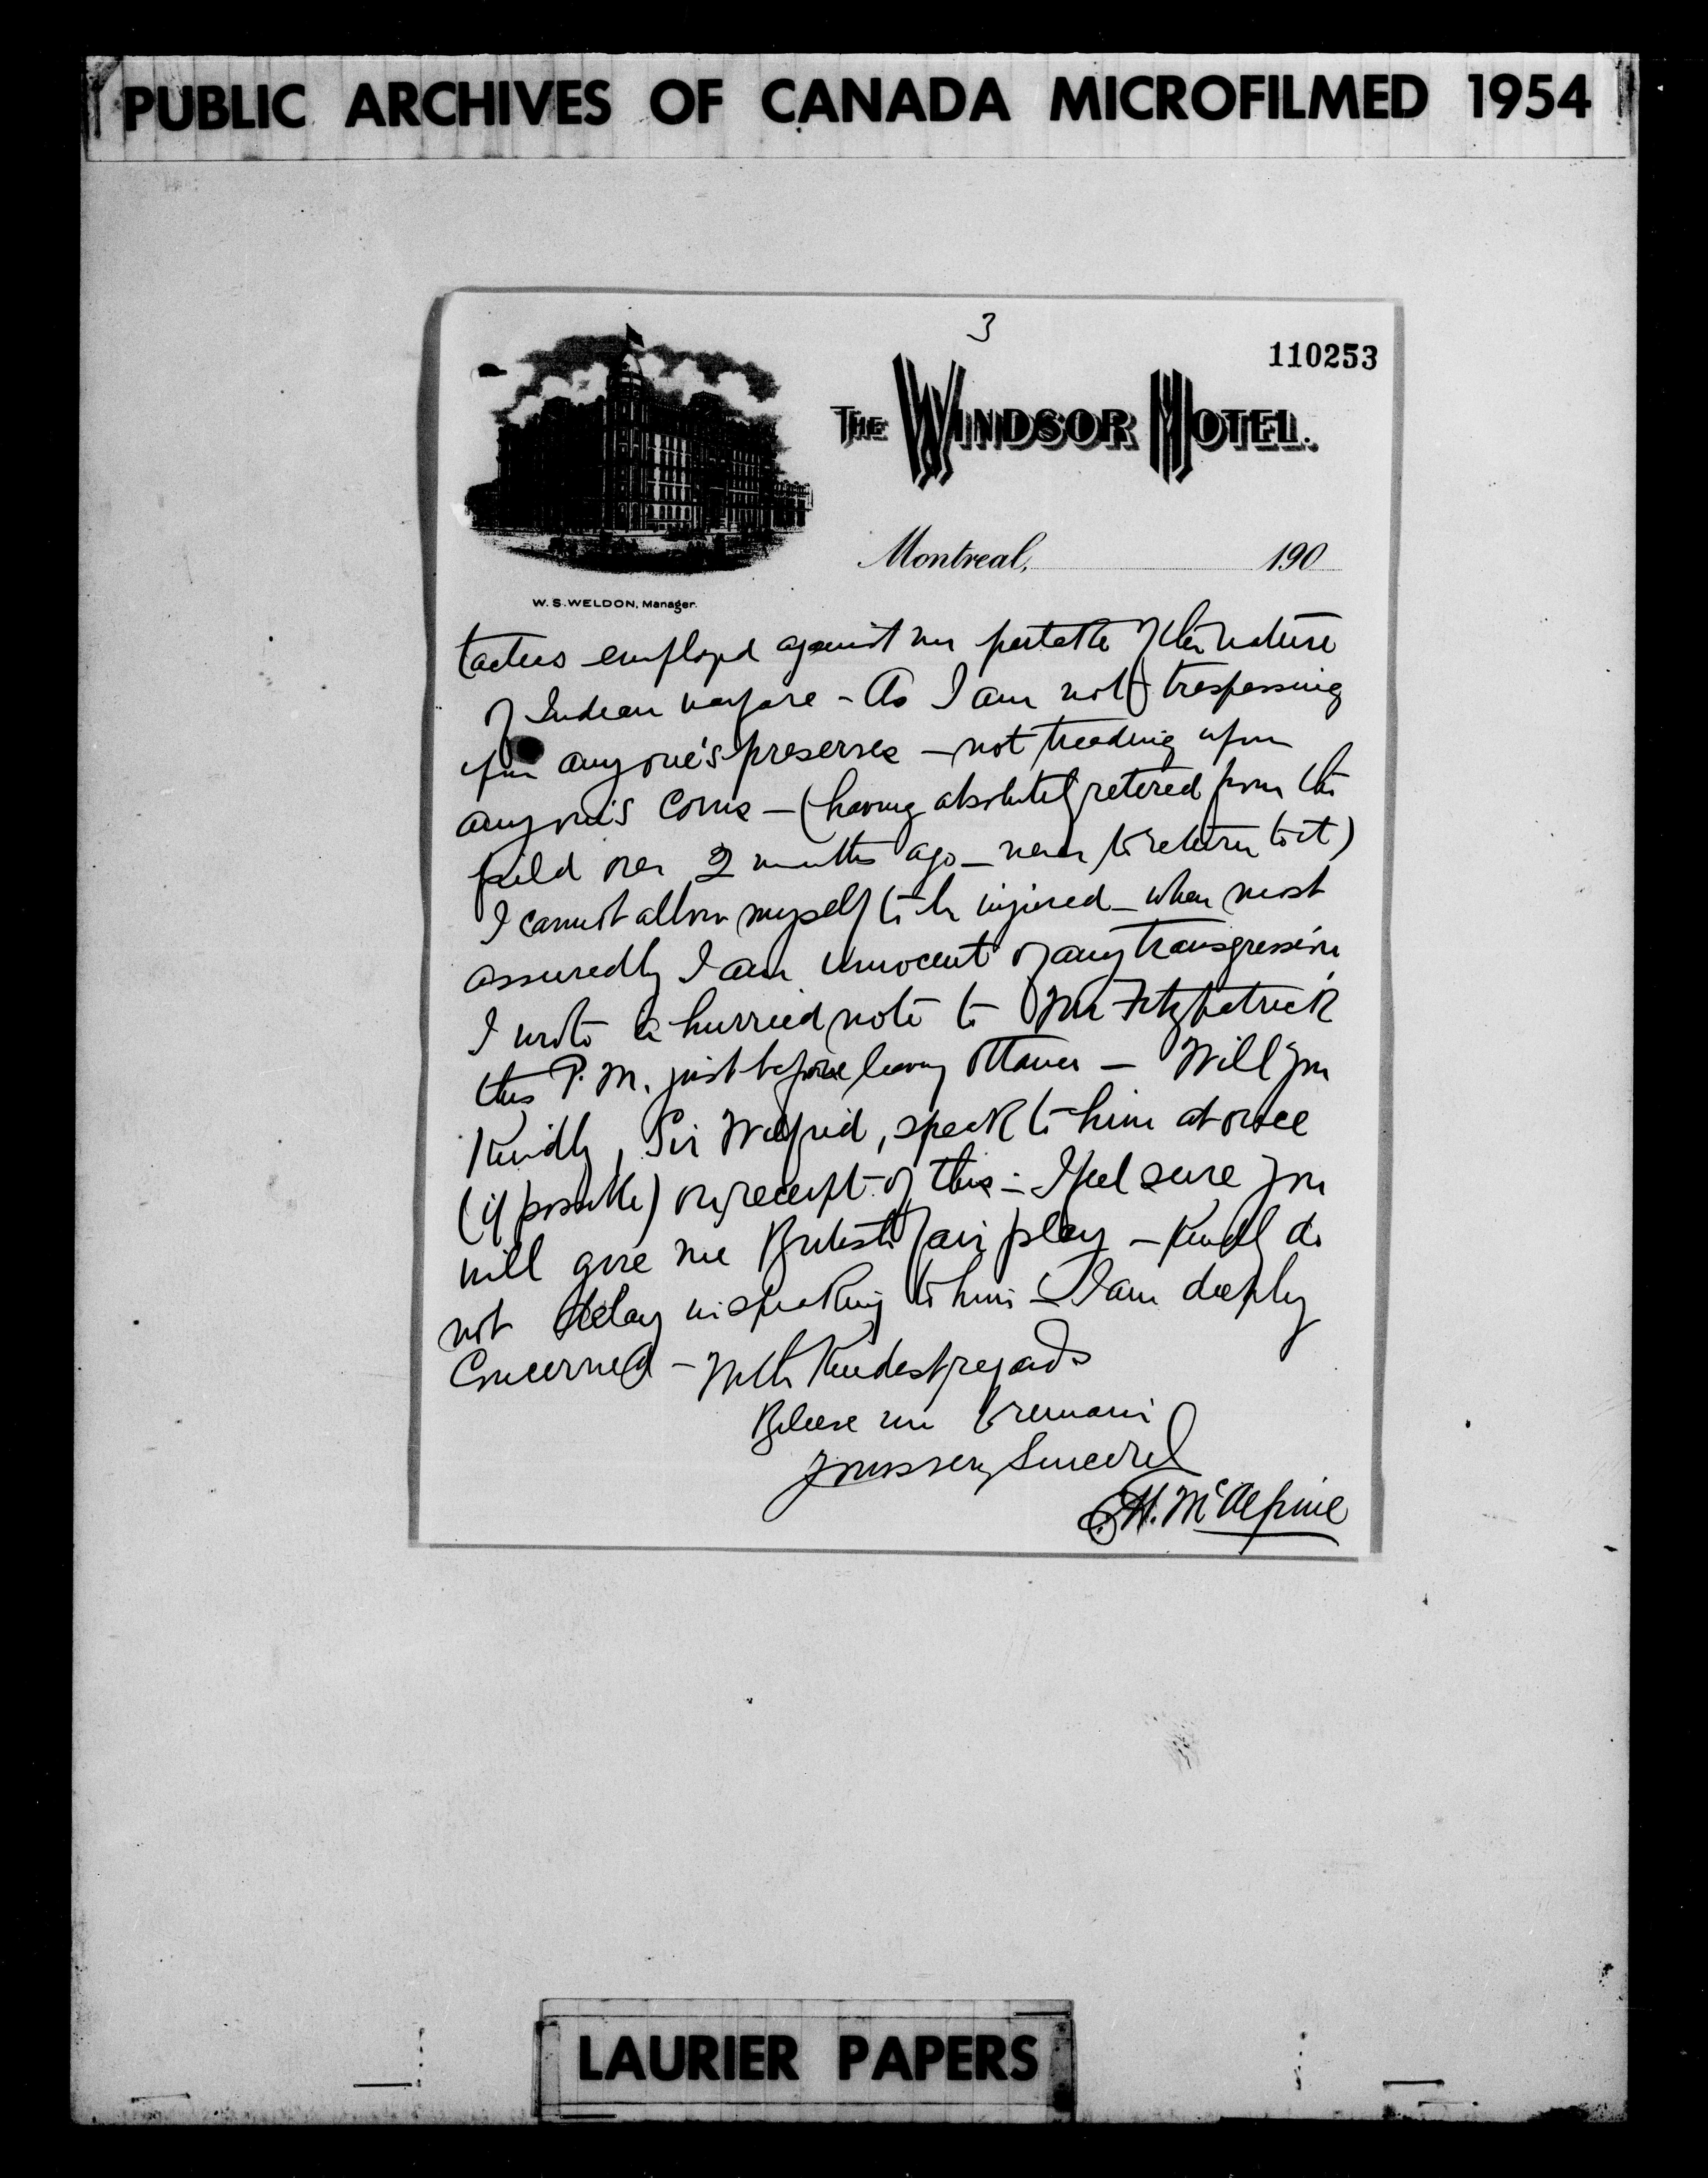 PUBLIC ARCHIVES OF CANADA MICROFILMED 1954
3
110253
THE WINDSOR HOTEL.
Montreal, 190
W. S. WELDON, Manager.
tactics employed against me partake of the nature
of Indian warfare - As I am not trespassing
upon anyone's preserves - not treading upon
anyone's corns - (having absolutely retired from the
field over 2 months ago - never to return to it)
I cannot allow myself to be injured - when most
assuredly I am innocent of any transgression
I wrote a hurried note to Mr Fitzpatrick
this P.M. just before leaving Ottawa - Will you
Kindly, Sir Wilfrid, speak to him at once
(if possible) on receipt of this - I feel sure you
will give me British fair play - Kindly do
not delay in speaking to him - I am deeply
Concerned - With Kindest regards
Believe me to remain
Yours very Sincerely
H. McAlpine
LAURIER PAPERS